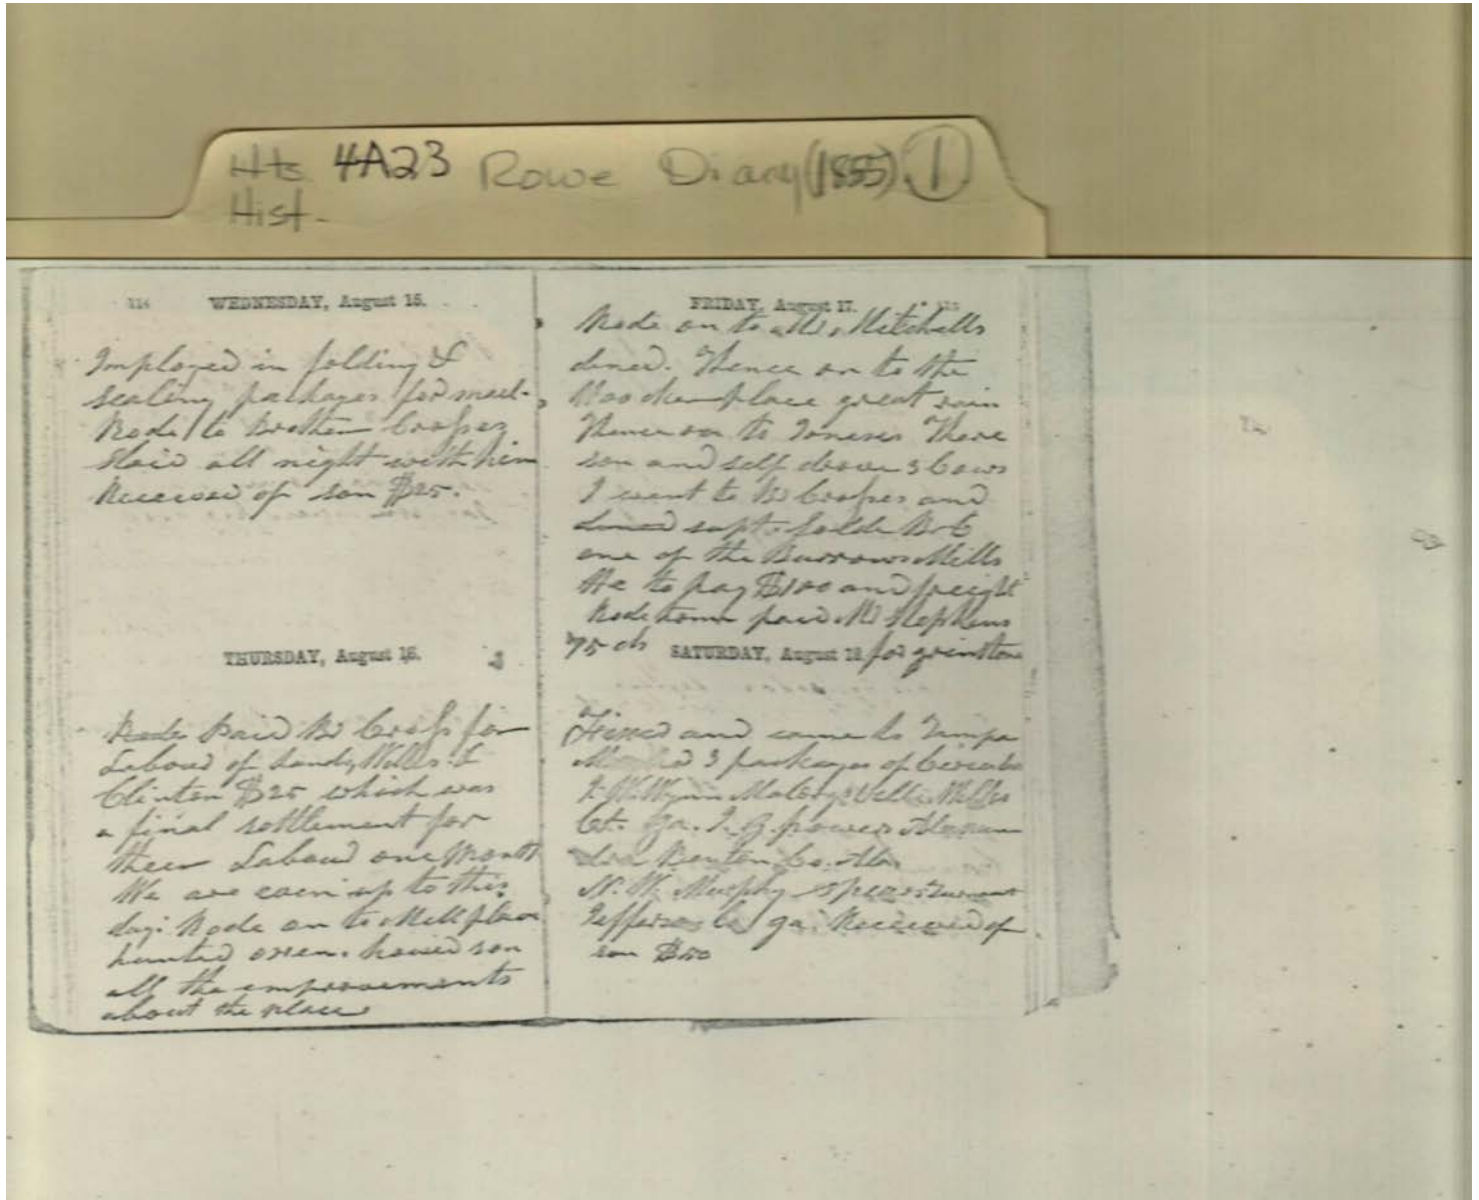 Hts 4A23 Rowe Diary (1855) 1
Hist.
114 WEDNESDAY, August 15.
Imployed in folding &
sealing packages for mail.
Rode to Brother Coopers
Staid all night with him
Received of son $25.
THURSDAY, August 16.
Rode Paid Br Coop for
Labour of hands, Wills &
Clinton $25 which was
a final settlement for
their Labour one Month
We are even up to this
day. Rode on to Mill place
hunted oxen. showed son
all the improvements
about the place
FRIDAY, August 17. 115
Rode on to Mr. Mitchells
dined. Thence on to the
Hooker place great rain
Thence on to Joneses There
son and self drove 3 Cows
I went to Br Coopers and
dined supt. Solde Br C
one of the Burrows Mills
He to pay $100 and freight
Rode home paid Mr Hopkins
75 cts for grinstone
SATURDAY, August 18
and came to Tampa
3 packages of
J. W. Wynn
Ct. Ga. J. G. power
Benton Co. Ala
N. W. Murphy
Jefferson Co ga. Received of
son $50